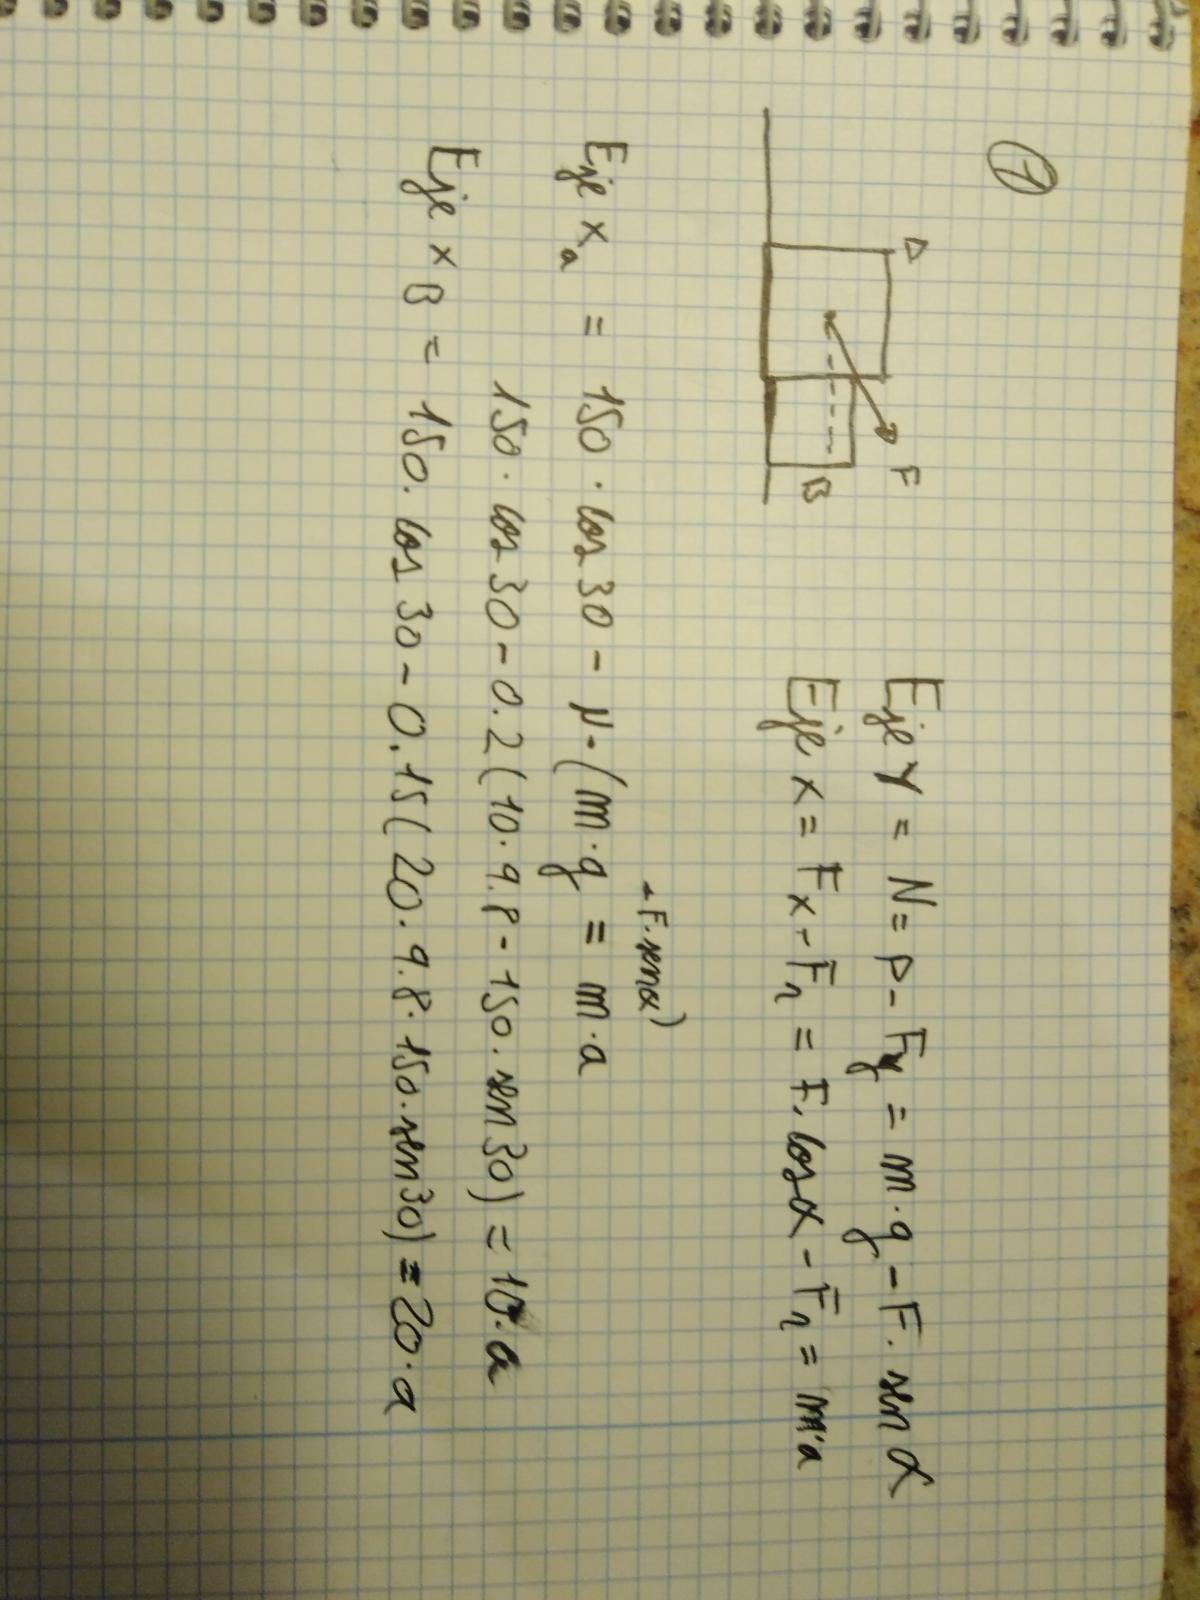 1
A
F
B
Eje Y = N = P - Fy = m·g - F·sen α
Eje x = Fx - Fr = F·cos α - Fr = m·a
- F·sen α)
Eje xa = 150·cos 30 - μ·(m·g = m·a
150·cos 30 - 0.2(10·9.8 - 150·sen 30) = 10·a
Eje x B = 150·cos 30 - 0.15(20·9.8·150·sen 30) = 20·a